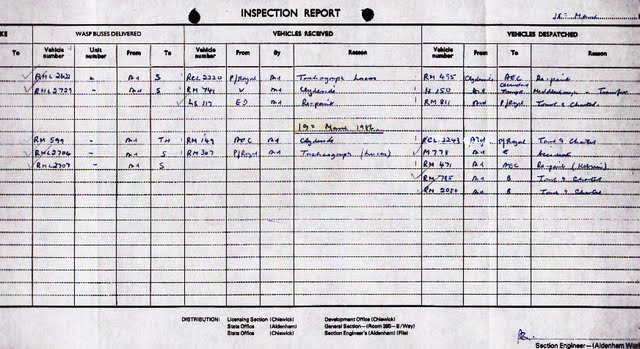 INSPECTION REPORT 18th March
KE WASP BUSES DELIVERED VEHICLES RECEIVED VEHICLES DESPATCHED
To Vehicle number Unit number From To Vehicle number From By Reason Vehicle number From To Reason
RML 2633 - Ad S RCL 2220 P/Royal Ad Tachograph RM 495 Clydeside AEC Repaint
RML 2729 - Ad S RM 741 V Ad Clydeside H 150 Ad
LS 117 ED Ad Repaint RM 811 Ad P/Royal Tours & Charter
19th March 1986
RM 599 - Ad TH RM 149 AEC Ad Clydeside RCL 2243 Ad P/Royal Tours & Charter
RML 2704 - Ad S RM 307 P/Royal Ad Tachograph M 778 Ad
RML 2707 - Ad S RM 471 Ad AEC Repaint
RM 785 Ad B Tours & Charter
RM 2050 Ad B Tours & Charter
DISTRIBUTION: Licensing Section (Chiswick) Development Office (Chiswick)
Stats Office (Aldenham) General Section—(Room 395–8/Way)
Stats Office (Chiswick) Section Engineer's (Aldenham) (File)
Section Engineer—(Aldenham Wor